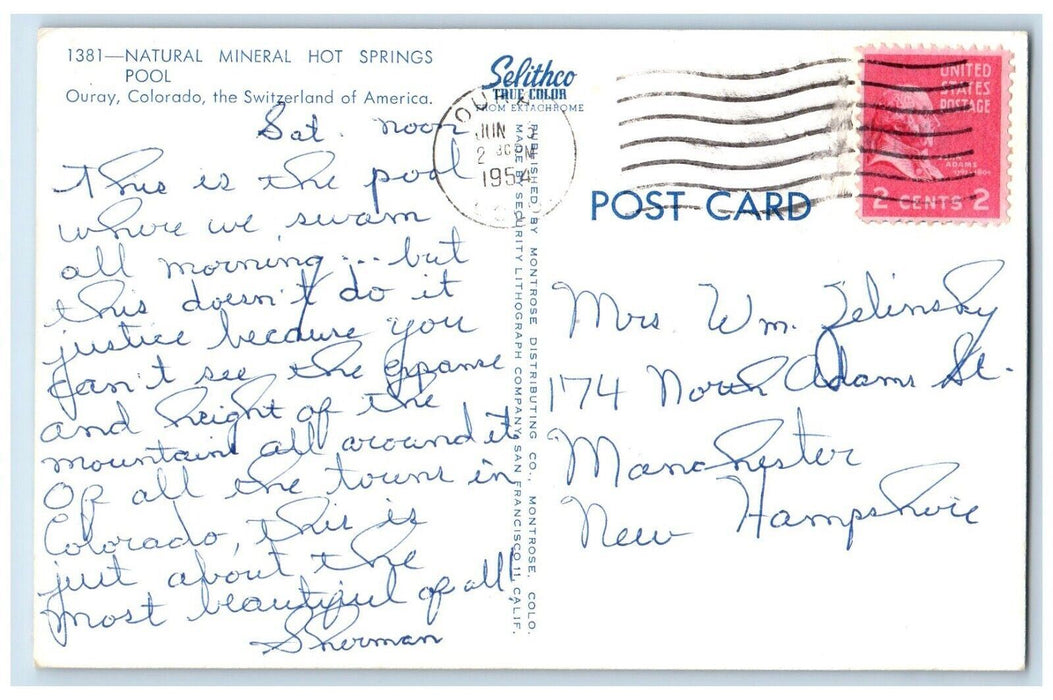 1381—NATURAL MINERAL HOT SPRINGS
POOL
Ouray, Colorado, the Switzerland of America.
Selithco
TRUE COLOR
FROM EKTACHROME
Sat. noon
This is the pool
where we swam
all morning... but
this doesn't do it
justice because you
can't see the expanse
and height of the
mountains all around it.
Of all the towns in
Colorado, this is
just about the
most beautiful of all!
Sherman
PUBLISHED BY MONTROSE DISTRIBUTING CO., MONTROSE, COLO.
MADE BY SECURITY LITHOGRAPH COMPANY, SAN FRANCISCO 11, CALIF.
OURAY
JUN
2 30 PM
1954
UNITED
STATES
POSTAGE
ADAMS
2 CENTS 2
POST CARD
Mrs. Wm. Zelinsky
174 North Adams St.
Manchester
New Hampshire